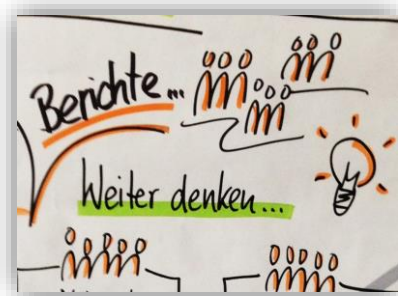 Berichte...
Weiter denken...